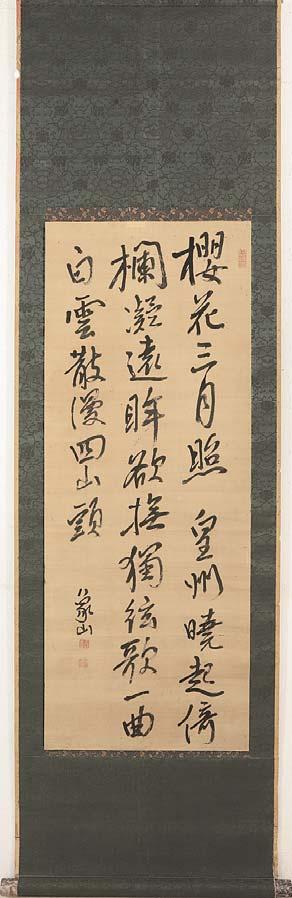 櫻花三月照　皇州曉起倚
欄凝遠眸欲撫獨弦歌一曲
白雲散漫四山頭
象山